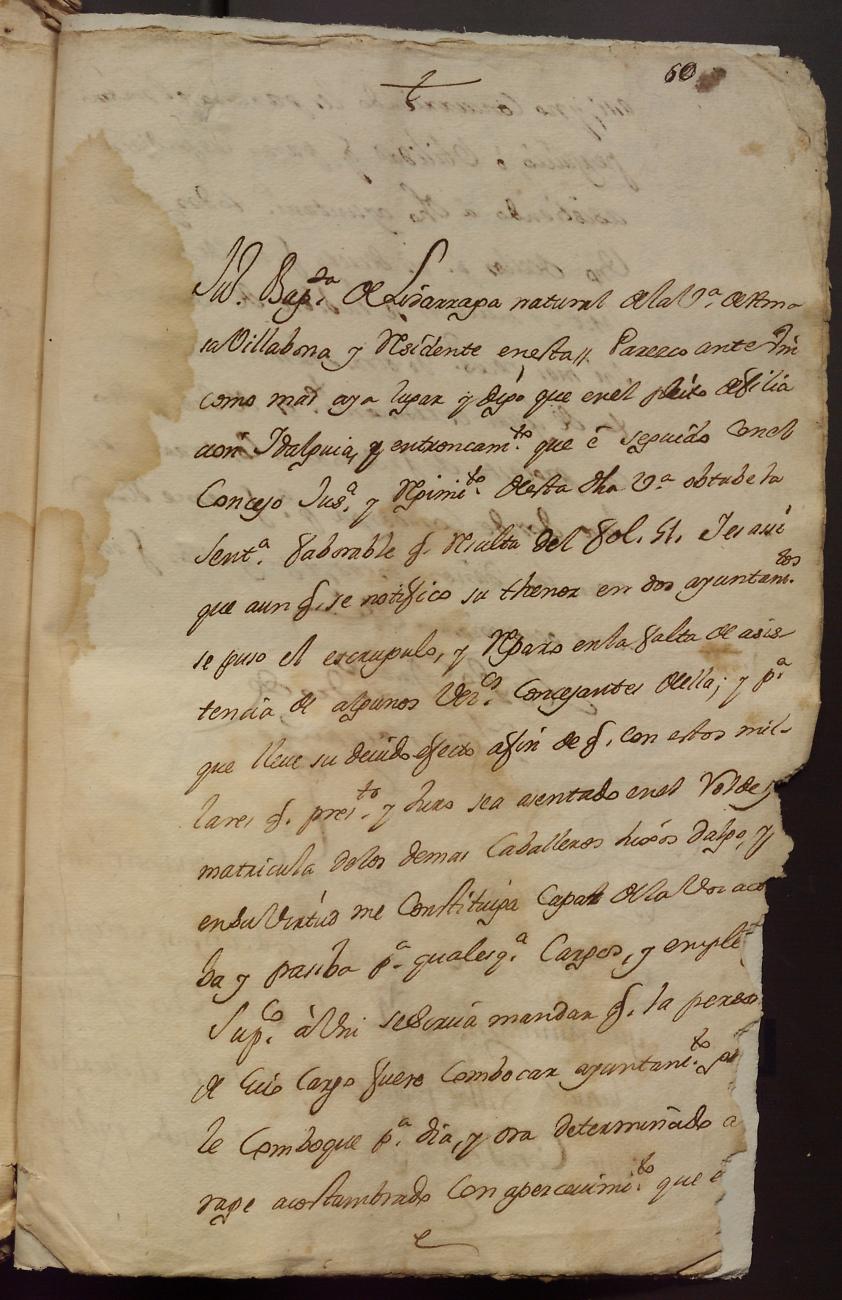 60
Ju.º Bap.ta de Lizarraga natural de la V.ª de Ama
sa Villabona y Residente en esta // Parezco ante Vm
como mas aya lugar y digo que en el pleito de filia
cion Idalguia, y entroncam.to que é seguido con el
Concejo Jus.ª y Regimi.to de esta dha V.ª obtube la
sent.ª faborable q. Resulta del fol. 51. Y es assi
que aun q. se notifico su thenor en dos ayuntam.tos
se puso el escrupulo, y Reparo en la falta de asis
tencia de algunos Vez.os Concejantes de ella; y p.ª
que lleve su devido efecto a fin de q. con estos mil-
lares q. pres.to y Juro sea asentado en el Rolde y
matricula de los demas Caballeros hixos dalgo, y
en su Virtud me Constituiga Capaz de la Voz acti
ba y pasiba p.ª qualesq.ª Cargos, y emple
Sup.co à Vm se sirva mandar q. la perso
de cuio Cargo fuere Combocar ayuntam.to
le Comboque p.ª dia, y ora determinado a
rage acostumbrado Con apercevimi.to que